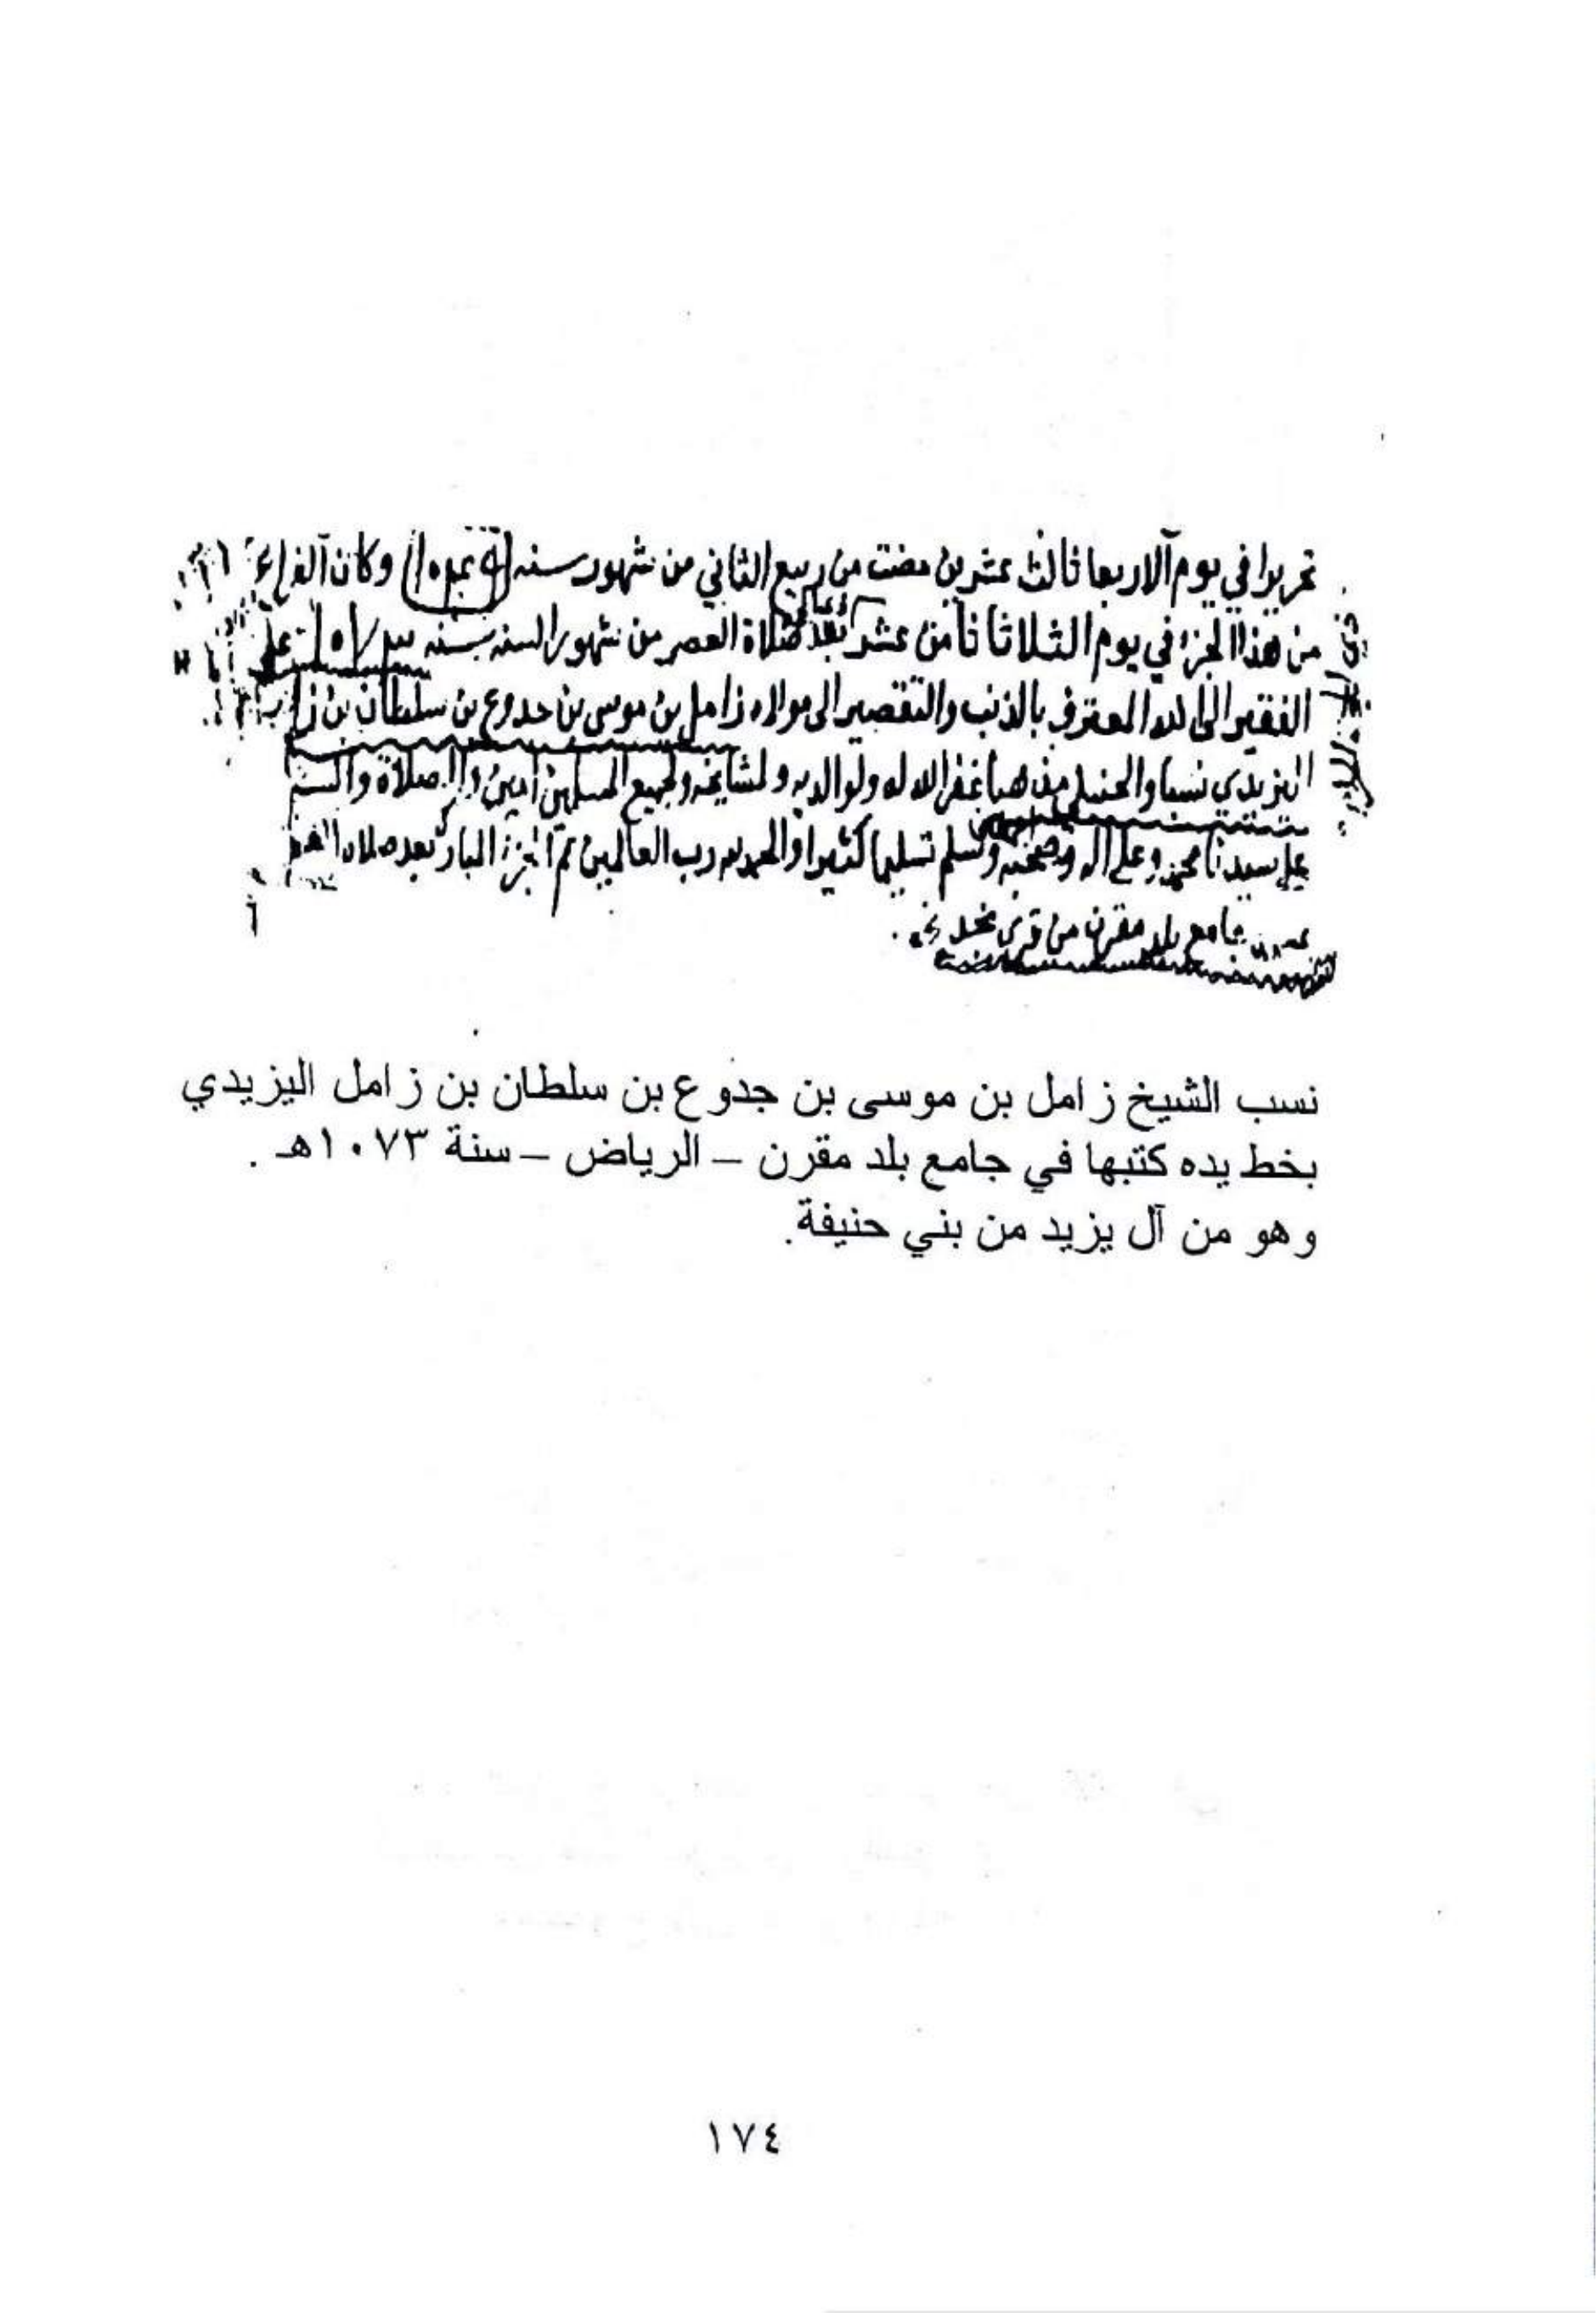 تحريرا في يوم الاربعا ثالث عشرين مضت من ربيع الثاني من شهور سنه وكان الفراغ
من هذا الجزء في يوم الثلاثا ثامن عشر بعد صلاة العصر من شهور السنه علي
الفقير الى الله المعترف بالذنب والتقصير الى مولاه زامل بن موسى بن جدوع بن سلطان بن زامل
اليزيدي نسبا والحنبلي مذهبا غفر الله له ولوالديه ولمشايخه ولجميع المسلمين امين والصلاة والسلم
على سيدنا محمد وعلى اله وصحبه وسلم تسليما كثيرا والحمد لله رب العالمين تم الجزء المبارك بعد صلاة
جامع بلد مقرن من قرى نجد
نسب الشيخ زامل بن موسى بن جدوع بن سلطان بن زامل اليزيدي
بخط يده كتبها في جامع بلد مقرن – الرياض – سنة ١٠٧٣هـ .
وهو من آل يزيد من بني حنيفة.
١٧٤